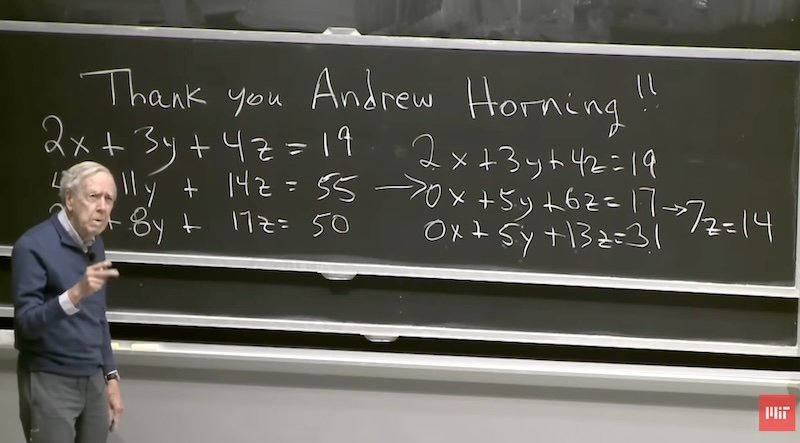 Thank you Andrew Horning !!
2x + 3y + 4z = 19
11y + 14z = 55
+ 8y + 17z= 50
→
2x+3y+4z=19
0x+5y+6z=17
0x+5y+13z=31
→7z=14
MIT